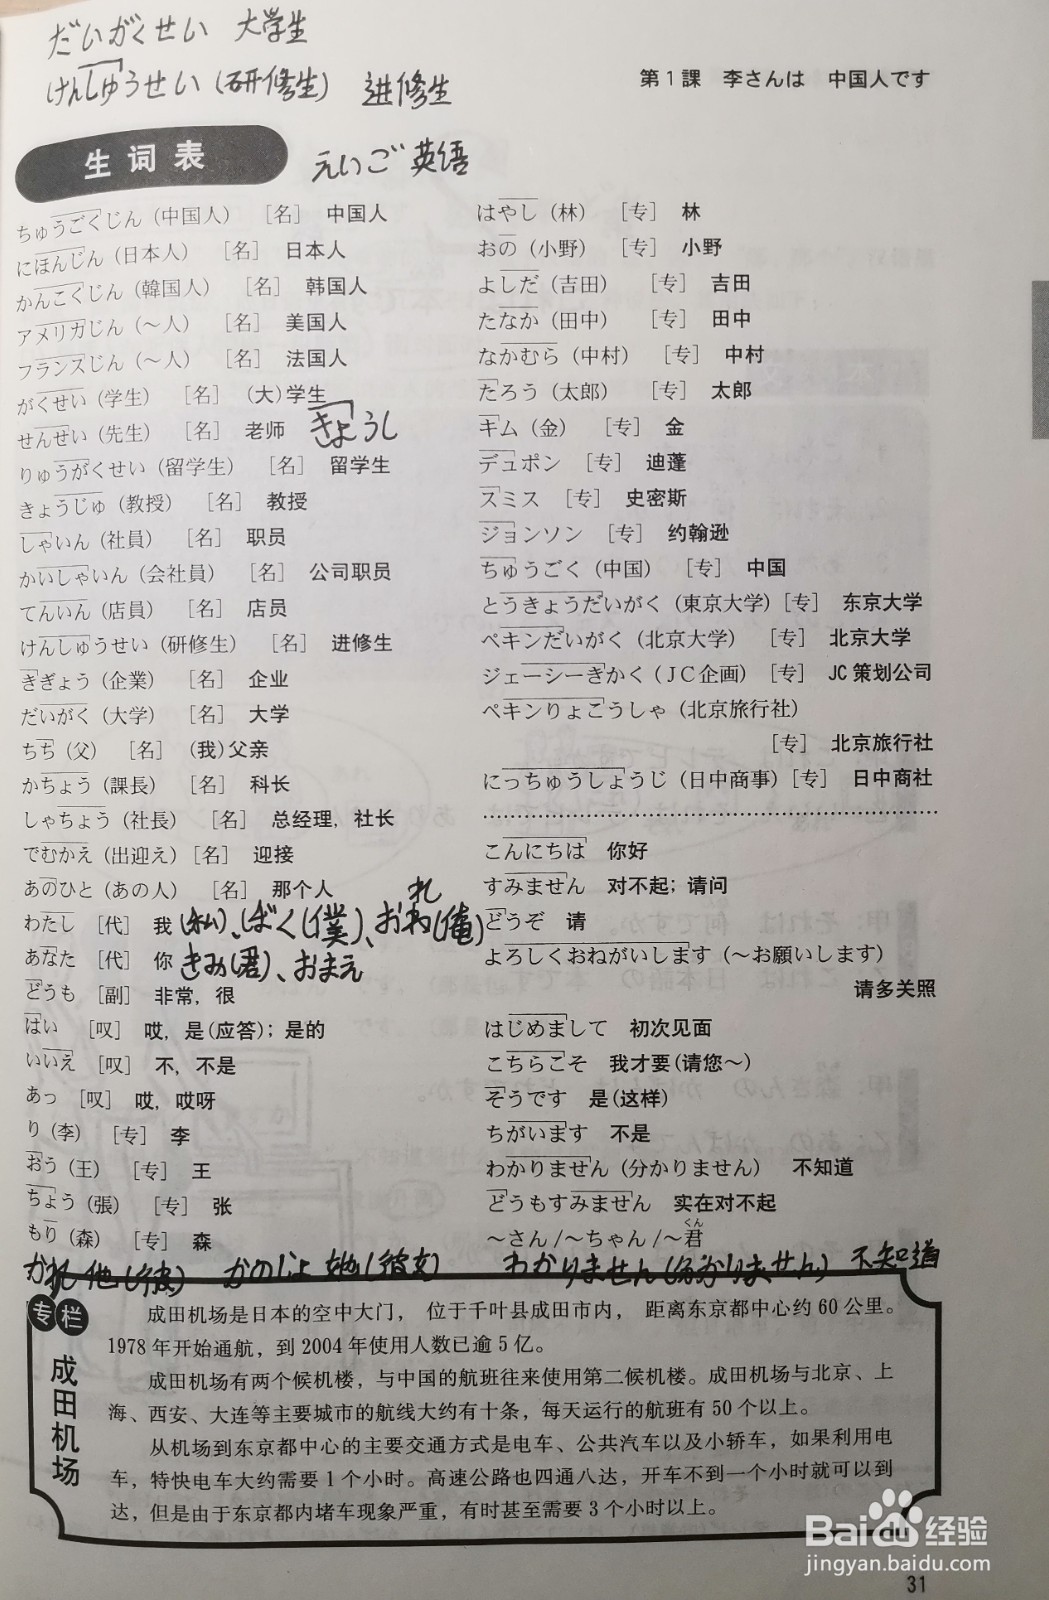 だいがくせい 大学生
けんしゅうせい(研修生) 进修生
第1課 李さんは 中国人です
生词表
えいご 英语
ちゅうごくじん(中国人) [名] 中国人
にほんじん(日本人) [名] 日本人
かんこくじん(韓国人) [名] 韩国人
アメリカじん(～人) [名] 美国人
フランスじん(～人) [名] 法国人
がくせい(学生) [名] (大)学生
せんせい(先生) [名] 老师 きょうし
りゅうがくせい(留学生) [名] 留学生
きょうじゅ(教授) [名] 教授
しゃいん(社員) [名] 职员
かいしゃいん(会社員) [名] 公司职员
てんいん(店員) [名] 店员
けんしゅうせい(研修生) [名] 进修生
きぎょう(企業) [名] 企业
だいがく(大学) [名] 大学
ちち(父) [名] (我)父亲
かちょう(課長) [名] 科长
しゃちょう(社長) [名] 总经理，社长
でむかえ(出迎え) [名] 迎接
あのひと(あの人) [名] 那个人
わたし [代] 我 (私)、ぼく(僕)、おれ(俺)
あなた [代] 你 きみ(君)、おまえ
どうも [副] 非常，很
はい [叹] 哎，是(应答)；是的
いいえ [叹] 不，不是
あっ [叹] 哎，哎呀
り(李) [专] 李
おう(王) [专] 王
ちょう(張) [专] 张
もり(森) [专] 森
はやし(林) [专] 林
おの(小野) [专] 小野
よしだ(吉田) [专] 吉田
たなか(田中) [专] 田中
なかむら(中村) [专] 中村
たろう(太郎) [专] 太郎
キム(金) [专] 金
デュポン [专] 迪蓬
スミス [专] 史密斯
ジョンソン [专] 约翰逊
ちゅうごく(中国) [专] 中国
とうきょうだいがく(東京大学) [专] 东京大学
ペキンだいがく(北京大学) [专] 北京大学
ジェーシーきかく(JC企画) [专] JC策划公司
ペキンりょこうしゃ(北京旅行社)
[专] 北京旅行社
にっちゅうしょうじ(日中商事) [专] 日中商社
こんにちは 你好
すみません 对不起；请问
どうぞ 请
よろしくおねがいします(～お願いします)
请多关照
はじめまして 初次见面
こちらこそ 我才要(请您～)
そうです 是(这样)
ちがいます 不是
わかりません(分かりません) 不知道
どうもすみません 实在对不起
～さん/～ちゃん/～君
くん
かれ 他(彼) かのじょ 她(彼女) わかりません(分かりません) 不知道
专栏
成田机场
成田机场是日本的空中大门， 位于千叶县成田市内， 距离东京都中心约60公里。
1978年开始通航，到2004年使用人数已逾5亿。
成田机场有两个候机楼，与中国的航班往来使用第二候机楼。成田机场与北京、上
海、西安、大连等主要城市的航线大约有十条，每天运行的航班有50个以上。
从机场到东京都中心的主要交通方式是电车、公共汽车以及小轿车，如果利用电
车，特快电车大约需要1个小时。高速公路也四通八达，开车不到一个小时就可以到
达，但是由于东京都内堵车现象严重，有时甚至需要3个小时以上。
Baidu经验
jingyan.baidu.com
31